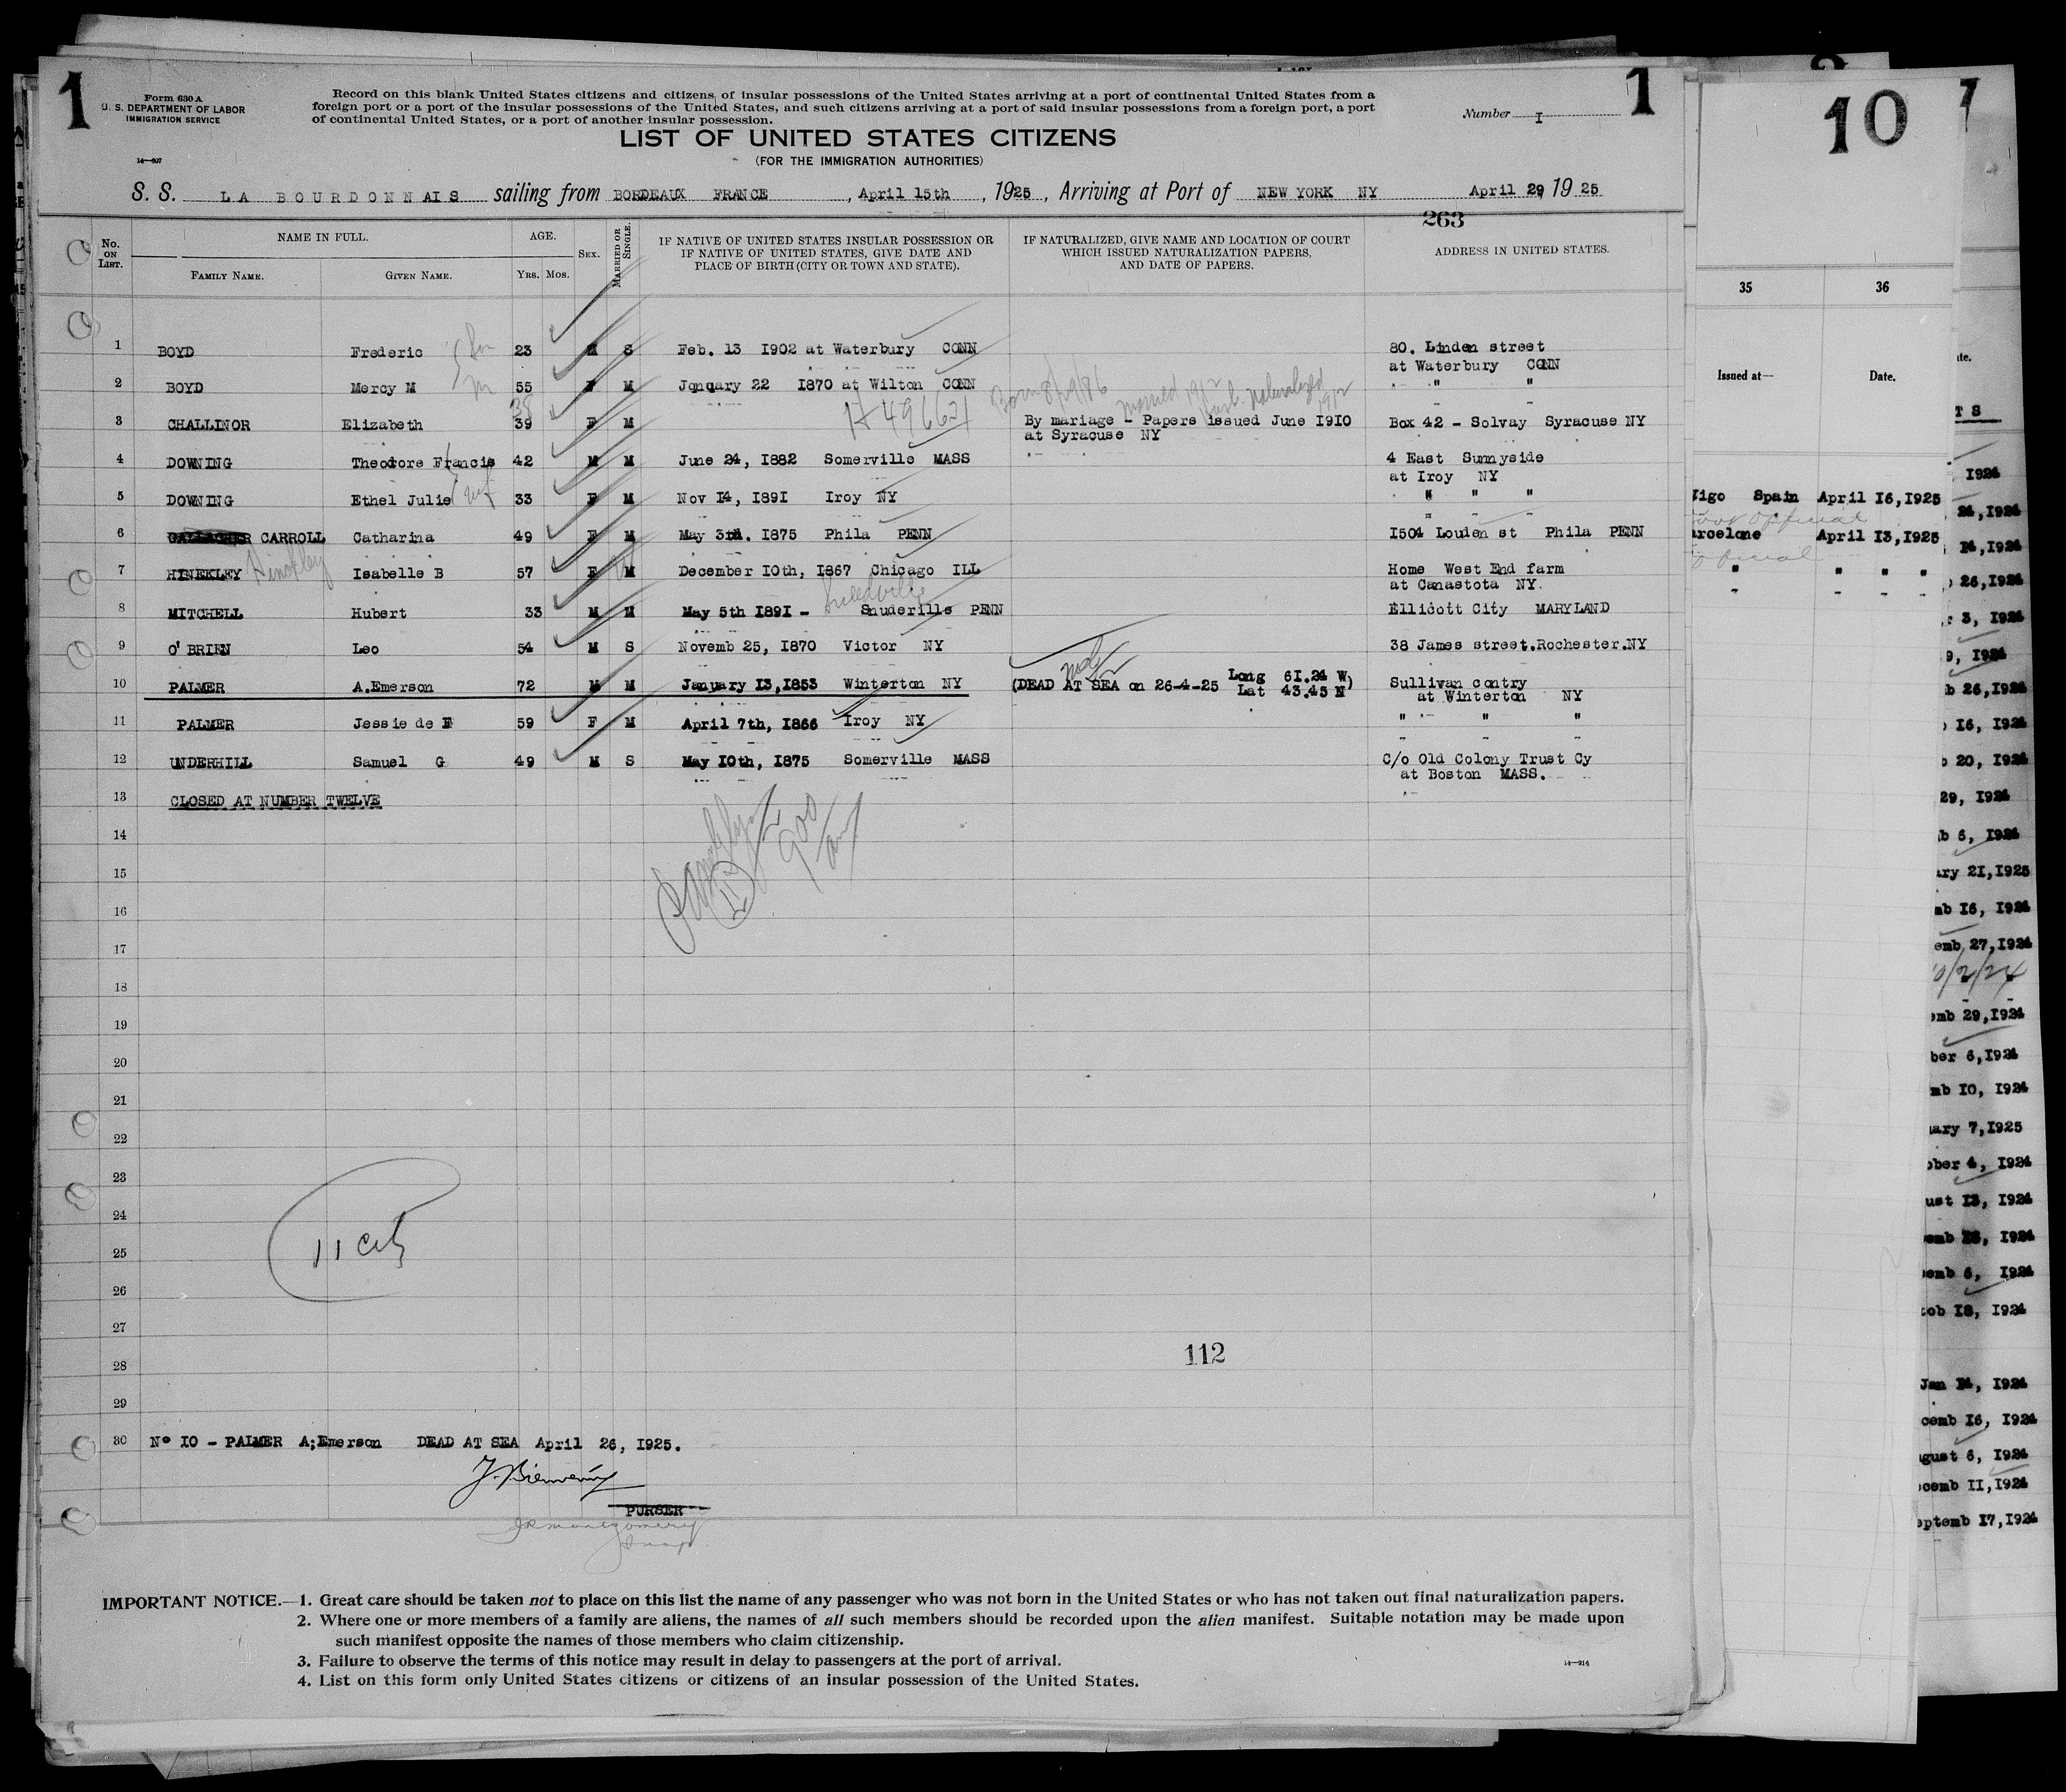 1
Form 630 A
U. S. DEPARTMENT OF LABOR
IMMIGRATION SERVICE
14—607
Record on this blank United States citizens and citizens of insular possessions of the United States arriving at a port of continental United States from a
foreign port or a port of the insular possessions of the United States, and such citizens arriving at a port of said insular possessions from a foreign port, a port
of continental United States, or a port of another insular possession.
Number I
1
LIST OF UNITED STATES CITIZENS
(FOR THE IMMIGRATION AUTHORITIES)
S. S. LA BOURDONNAIS sailing from BORDEAUX FRANCE, April 15th, 1925, Arriving at Port of NEW YORK NY April 29, 1925
263
No. ON LIST.
NAME IN FULL.
FAMILY NAME.
GIVEN NAME.
AGE.
Yrs. Mos.
SEX.
MARRIED OR SINGLE.
IF NATIVE OF UNITED STATES INSULAR POSSESSION OR
IF NATIVE OF UNITED STATES, GIVE DATE AND
PLACE OF BIRTH (CITY OR TOWN AND STATE).
IF NATURALIZED, GIVE NAME AND LOCATION OF COURT
WHICH ISSUED NATURALIZATION PAPERS,
AND DATE OF PAPERS.
ADDRESS IN UNITED STATES.
1 BOYD Frederic Son 23 M S Feb. 13 1902 at Waterbury CONN 80. Linden street
at Waterbury CONN
2 BOYD Mercy M m 55 F M Jonuary 22 1870 at Wilton CONN " "
38 A 496621 Born 8/19/86 Married 1912 Husb. Naturalized 1912
3 CHALLINOR Elizabeth 39 F M By mariage - Papers issued June 1910 Box 42 - Solvay Syracuse NY
at Syracuse NY
4 DOWNING Theodore Francis 42 M M June 24, 1882 Somerville MASS 4 East Sunnyside
at Iroy NY
5 DOWNING Ethel Julie wf 33 F M Nov 14, 1891 Iroy NY " " "
6 GALLAGHER CARROLL Catharina 49 F M May 3th. 1875 Phila PENN 1504 Louden st Phila PENN
7 HINEKLEY Hinckley Isabelle B 57 F M December 10th, 1867 Chicago ILL Home West End farm
at Canastota NY.
8 MITCHELL Hubert 33 M M May 5th 1891 - Snuderille PENN Ellicott City MARYLAND
9 O' BRIEN Leo 54 M S Novemb 25, 1870 Victor NY 38 James street.Rochester.NY
10 PALMER A.Emerson 72 M M January 13,1853 Winterton NY (DEAD AT SEA on 26-4-25 Long 61.24 W)
Lat 43.45 N
Sullivan contry
at Winterton NY
11 PALMER Jessie de F 59 F M April 7th, 1866 Iroy NY " " "
12 UNDERHILL Samuel G 49 M S May 10th, 1875 Somerville MASS C/o Old Colony Trust Cy
at Boston MASS.
13 CLOSED AT NUMBER TWELVE
14
15
900
am
16
17
18
19
20
21
22
23
24
25
26
27
28
29
11
112
30 Nº 10 - PALMER A;Emerson DEAD AT SEA April 26, 1925.
PURSER
JRMontgomery
Insp.
IMPORTANT NOTICE.—1. Great care should be taken not to place on this list the name of any passenger who was not born in the United States or who has not taken out final naturalization papers.
2. Where one or more members of a family are aliens, the names of all such members should be recorded upon the alien manifest. Suitable notation may be made upon
such manifest opposite the names of those members who claim citizenship.
3. Failure to observe the terms of this notice may result in delay to passengers at the port of arrival.
4. List on this form only United States citizens or citizens of an insular possession of the United States.
14—214
10
35 36
Issued at— Date.
Vigo Spain April 16,1925
official
arcelone April 13,1925
official
" " " "
7
ate.
T S
1924
24,1924
14,1924
26,1924
3, 1924
9, 1924
b 26,1924
16, 1924
20, 1924
29, 1924
b 6, 1924
ary 21,1925
mb 16, 1924
emb 27,1924
emb 29,1924
ber 6,1924
mb 10, 1924
uary 7,1925
ober 4, 1924
ust 13, 1924
emb 6, 1924
tob 18, 1924
Jan 14, 1924
cemb 16, 1924
ugust 6, 1924
ecemb 11,1924
eptemb 17,1924